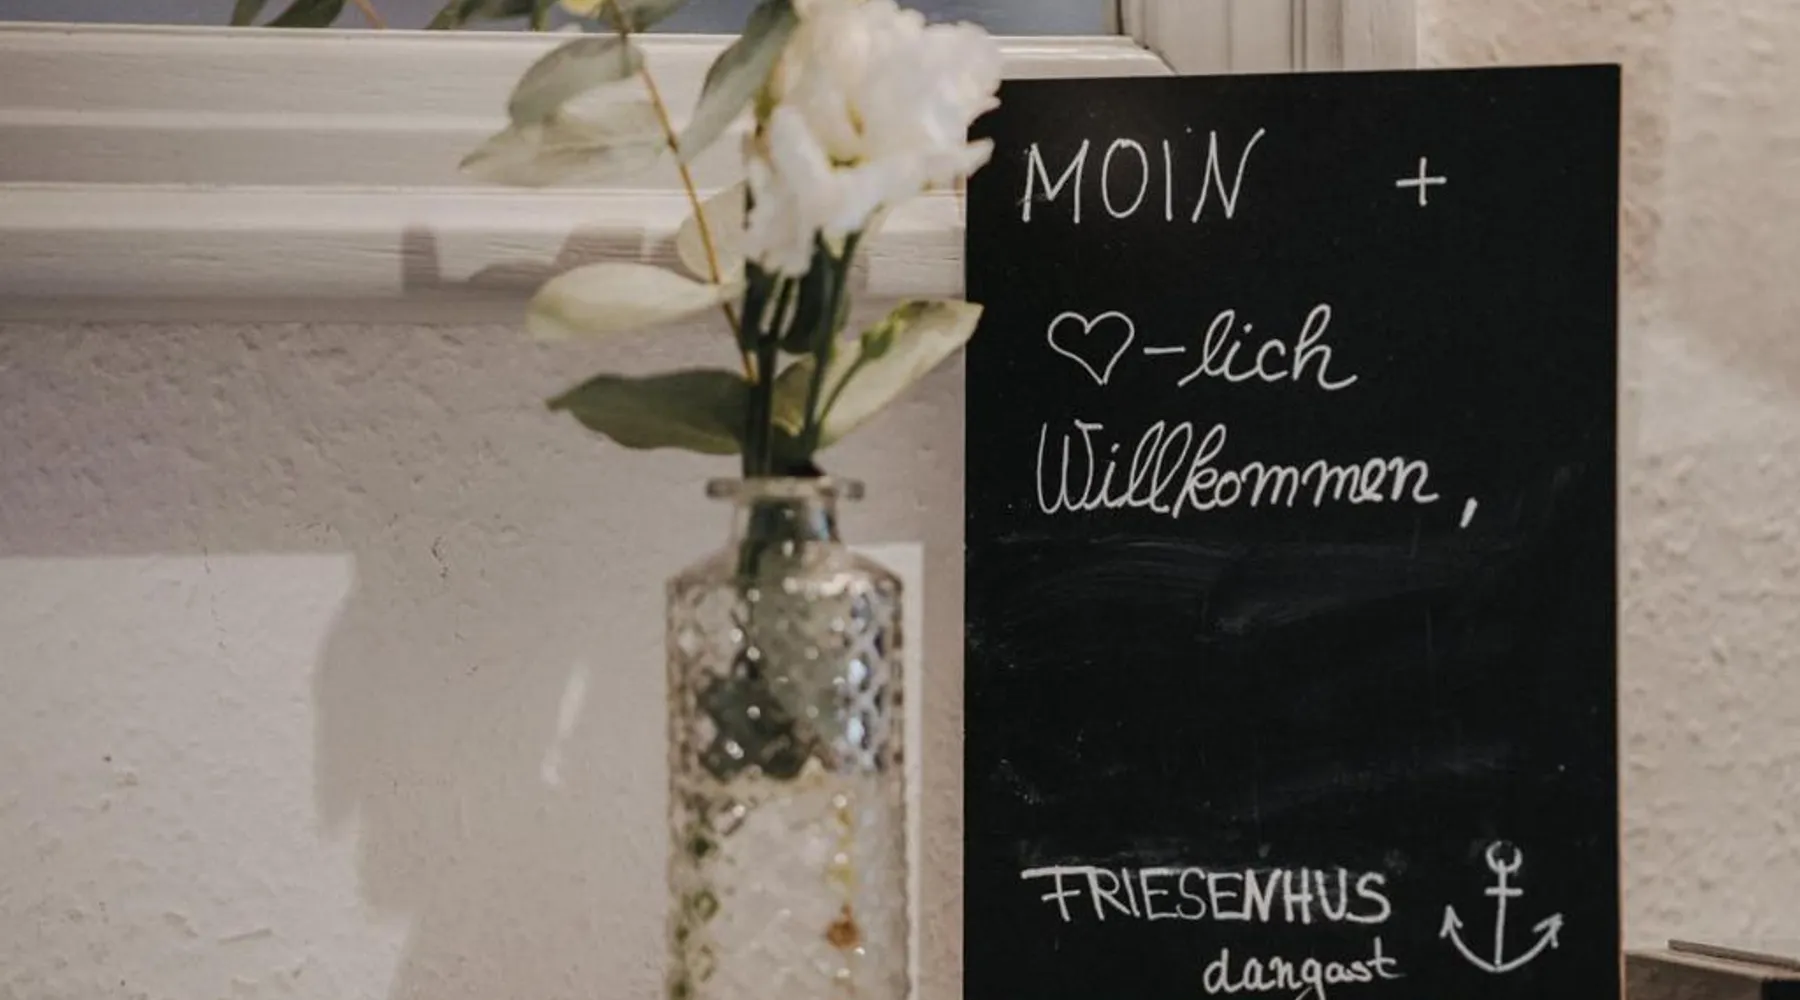 MOIN +
♡-lich
Willkommen,
FRIESENHUS
dangast